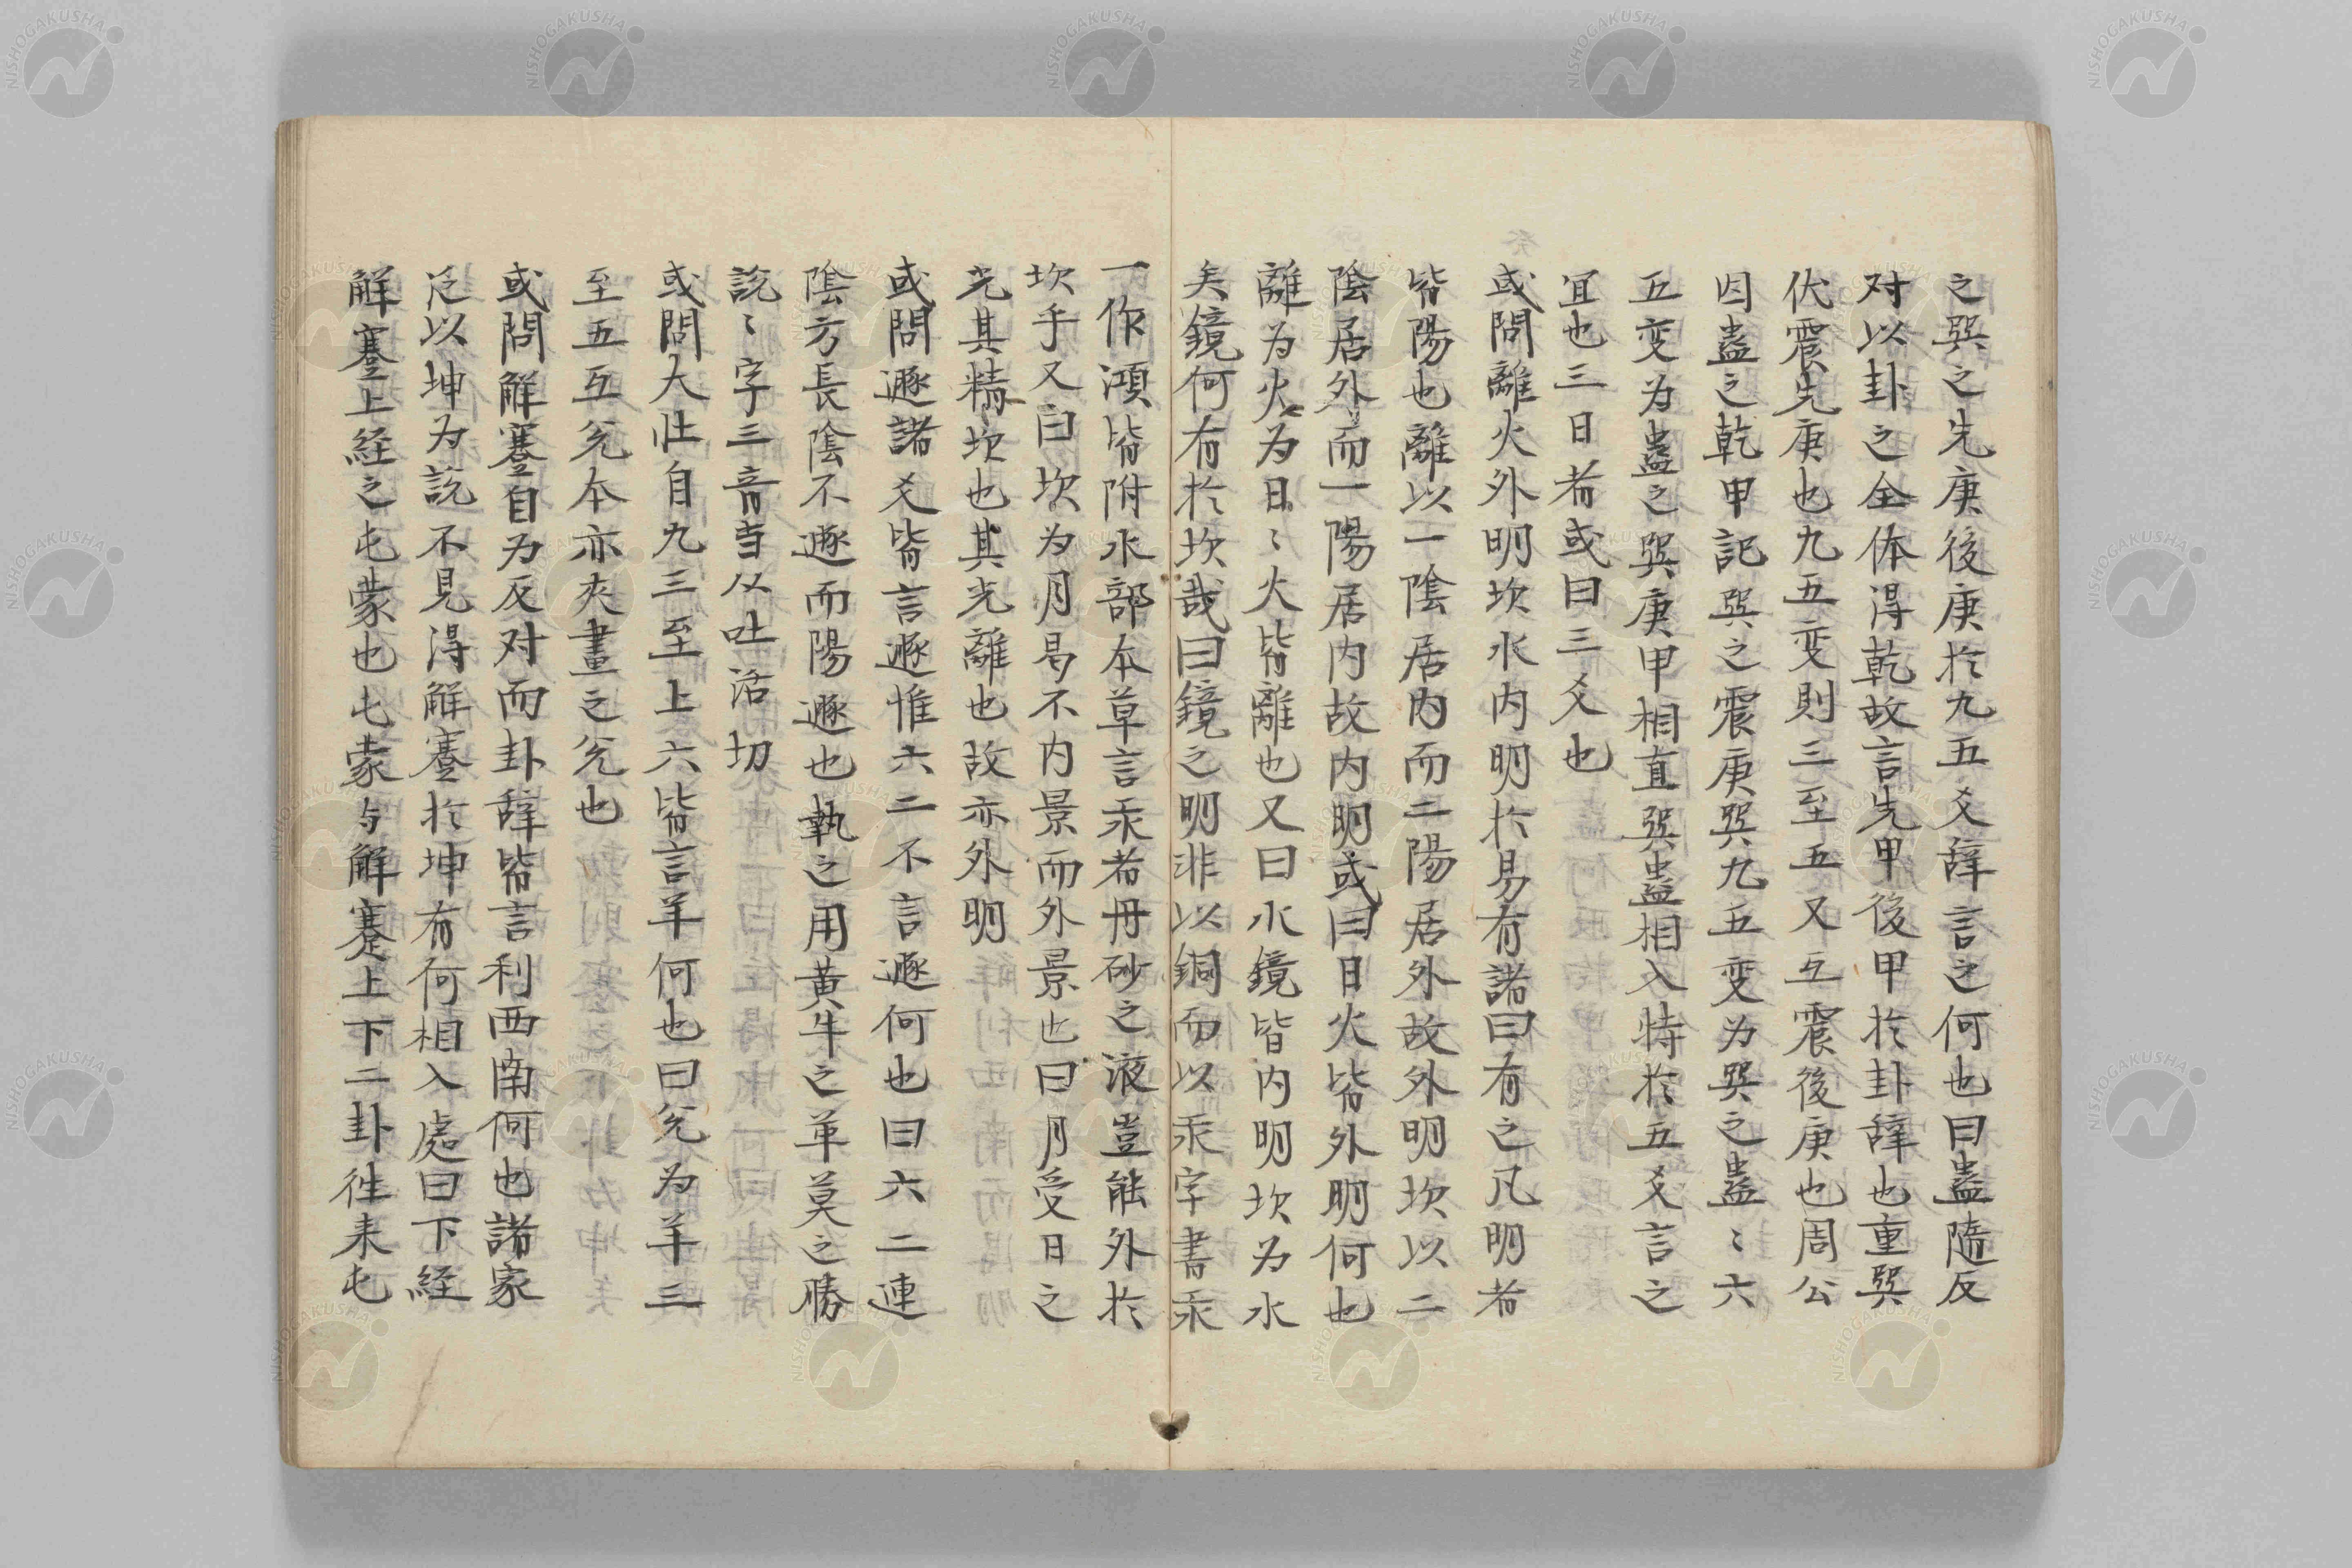 之巽之先庚後庚於九五爻辞言之何也曰蠱隨反
対以卦之全体得乾故言先甲後甲於卦辞也重巽
伏震先庚也九五变則三至五又互震後庚也周公
因蠱之乾甲記巽之震庚巽九五变为巽之蠱〻六
五变为蠱之巽庚甲相直巽蠱相入特於五爻言之
宜也三日者或曰三爻也
或問離火外明坎水内明於易有諸曰有之凡明者
皆陽也離以一陰居内而二陽居外故外明坎以二
陰居外而一陽居内故内明或曰日火皆外明何也
離为火为日〻火皆離也又曰水鏡皆内明坎为水
矣鏡何有於坎哉曰鏡之明非以銅而以汞字書汞
一作澒皆附水部本草言汞者丹砂之液豈能外於
坎乎又曰坎为月曷不内景而外景也曰月受日之
光其精坎也其光離也故亦外明
或問遯諸爻皆言遯惟六二不言遯何也曰六二連
陰方長陰不遯而陽遯也執之用黄牛之革莫之勝
説〻字三音当从吐活切
或問大壮自九三至上六皆言羊何也曰兊为羊三
至五互兊本亦夾畫之兊也
或問解蹇自为反対而卦辞皆言利西南何也諸家
泛以坤为説不見得解蹇於坤有何相入處曰下経
解蹇上経之屯蒙也屯蒙与解蹇上下二卦徃来屯
NISHOGAKUSHA